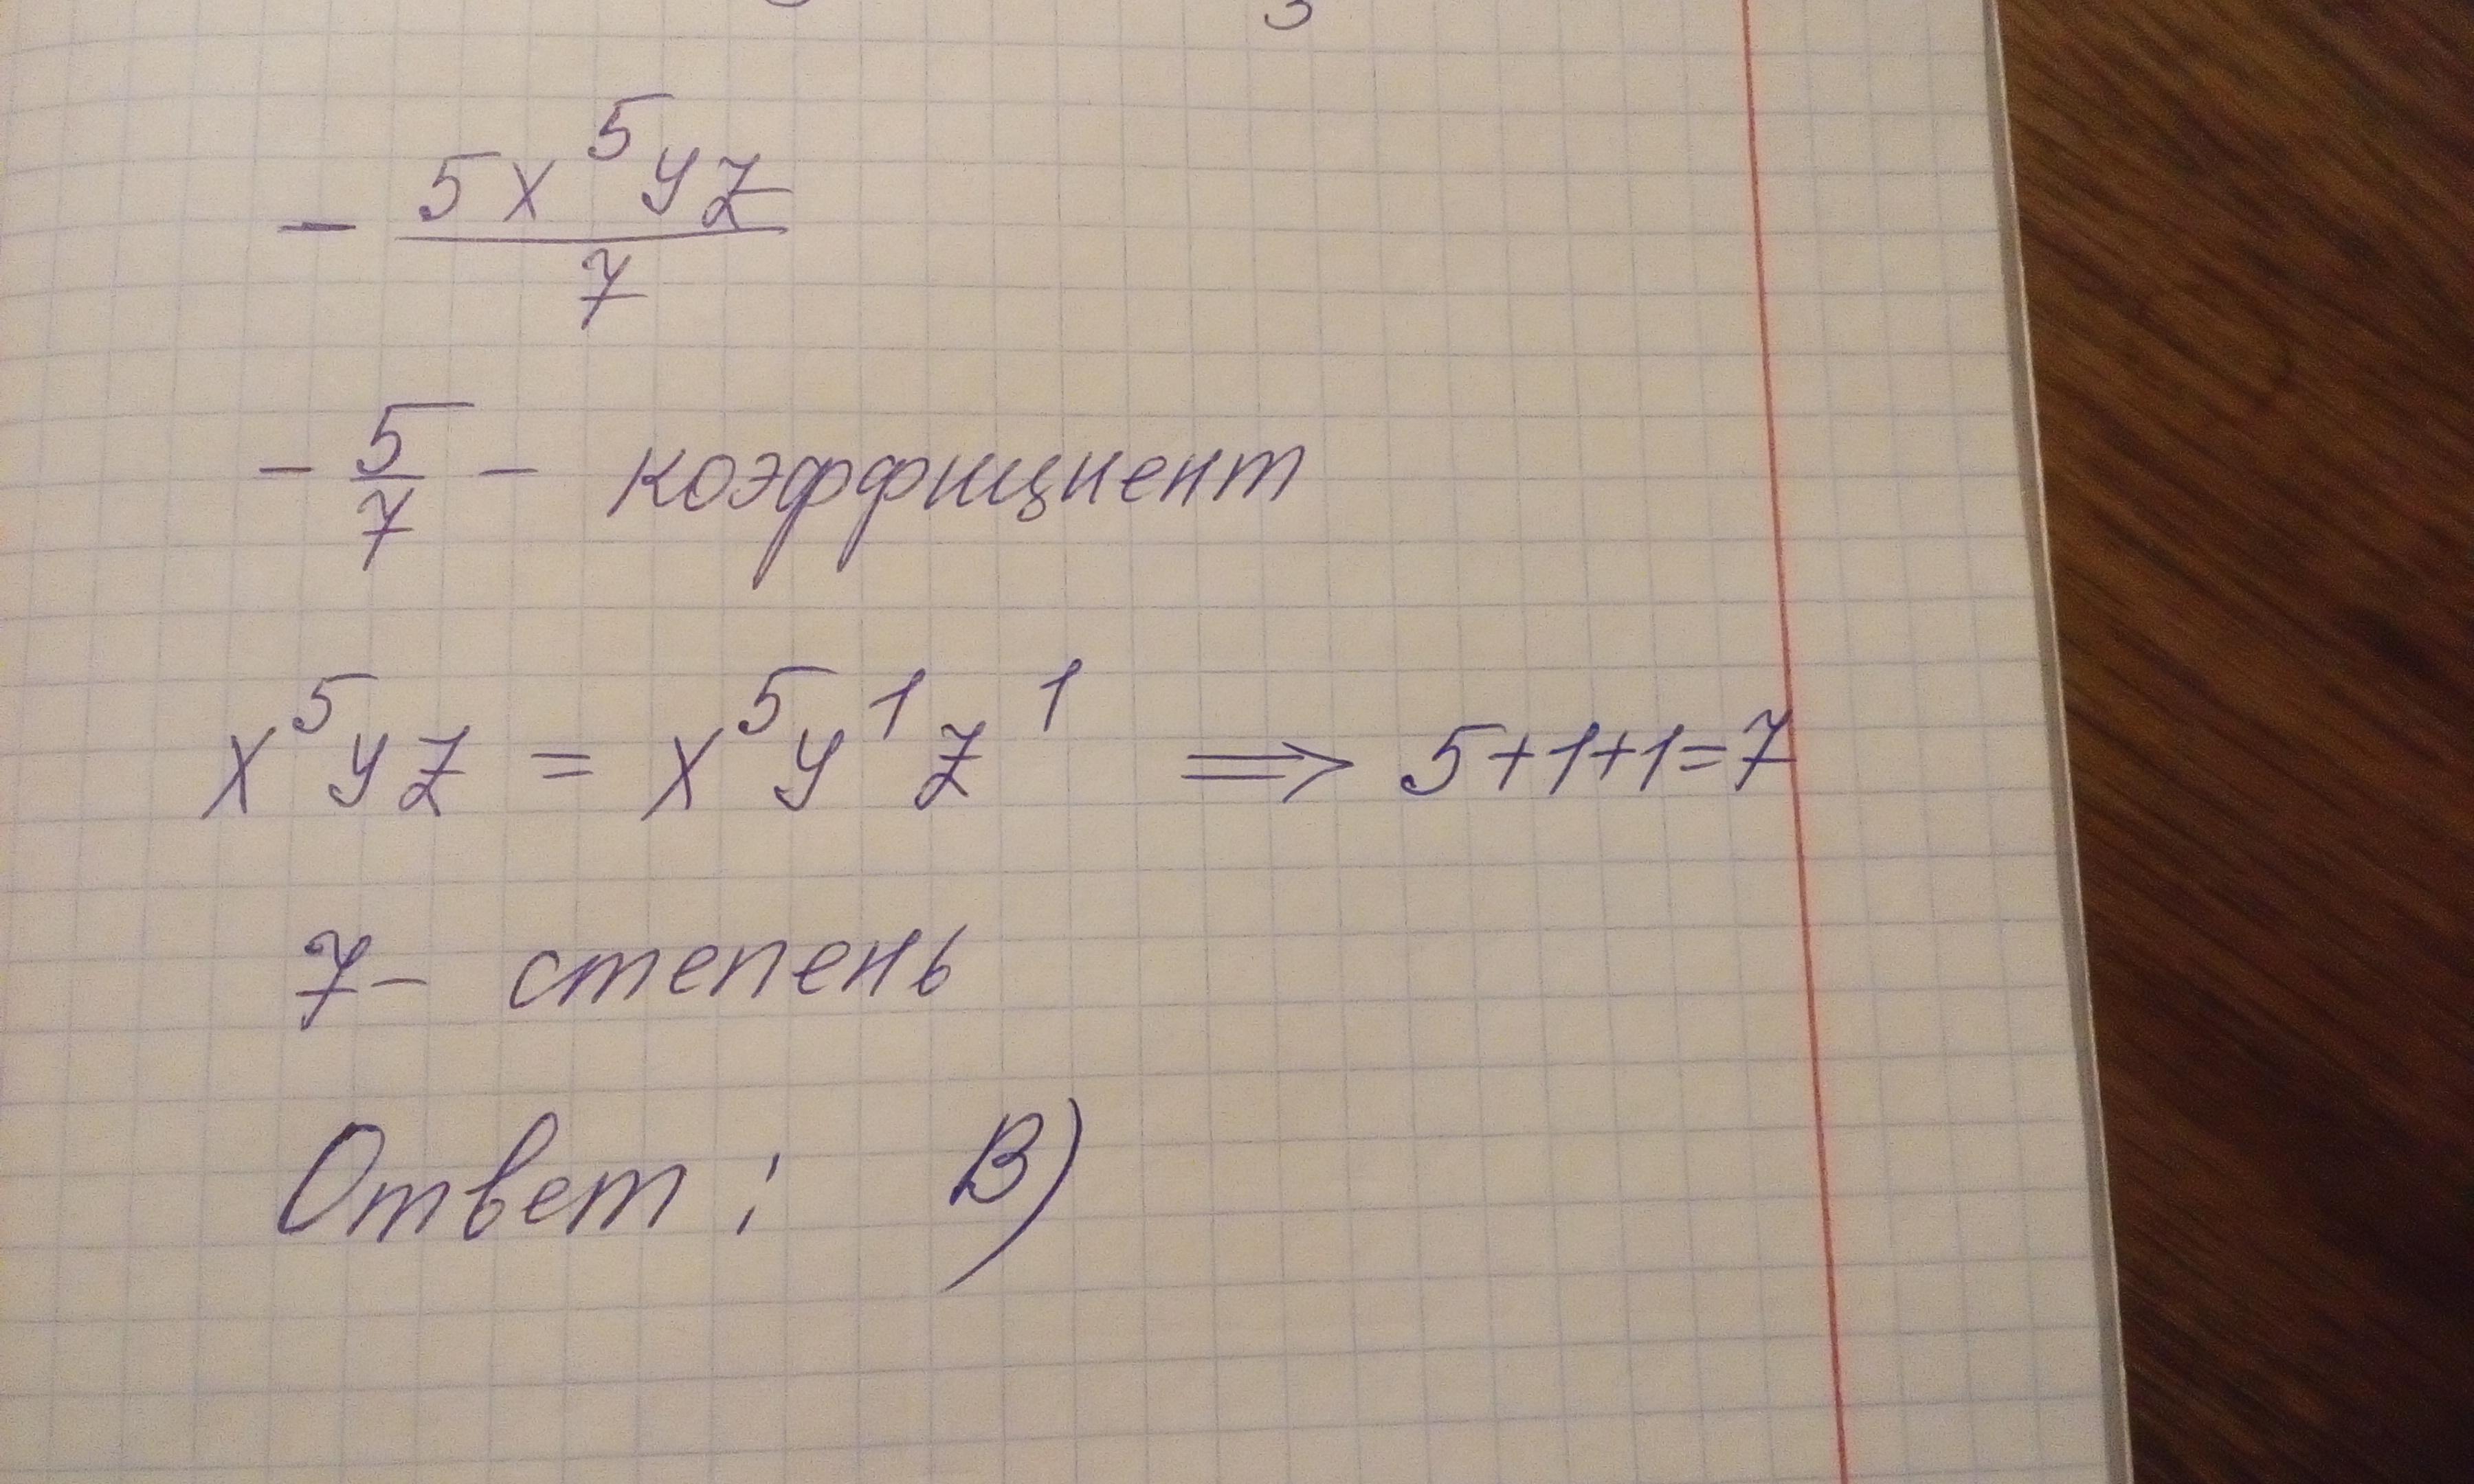 - 5x⁵yz / 7
- 5/7 - коэффициент
x⁵yz = x⁵y¹z¹ ⟹ 5+1+1=7
7- степень
Ответ: В)